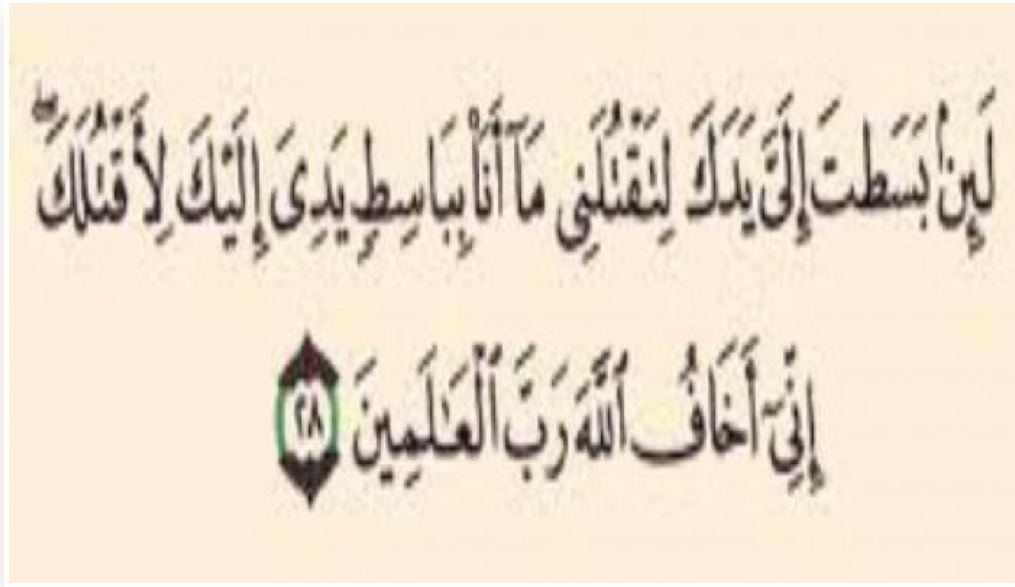 لَئِنۢ بَسَطتَ إِلَىَّ يَدَكَ لِتَقْتُلَنِى مَآ أَنَا۠ بِبَاسِطٍ يَدِىَ إِلَيْكَ لِأَقْتُلَكَ ۖ
إِنِّىٓ أَخَافُ ٱللَّهَ رَبَّ ٱلْعَٰلَمِينَ ٢٨